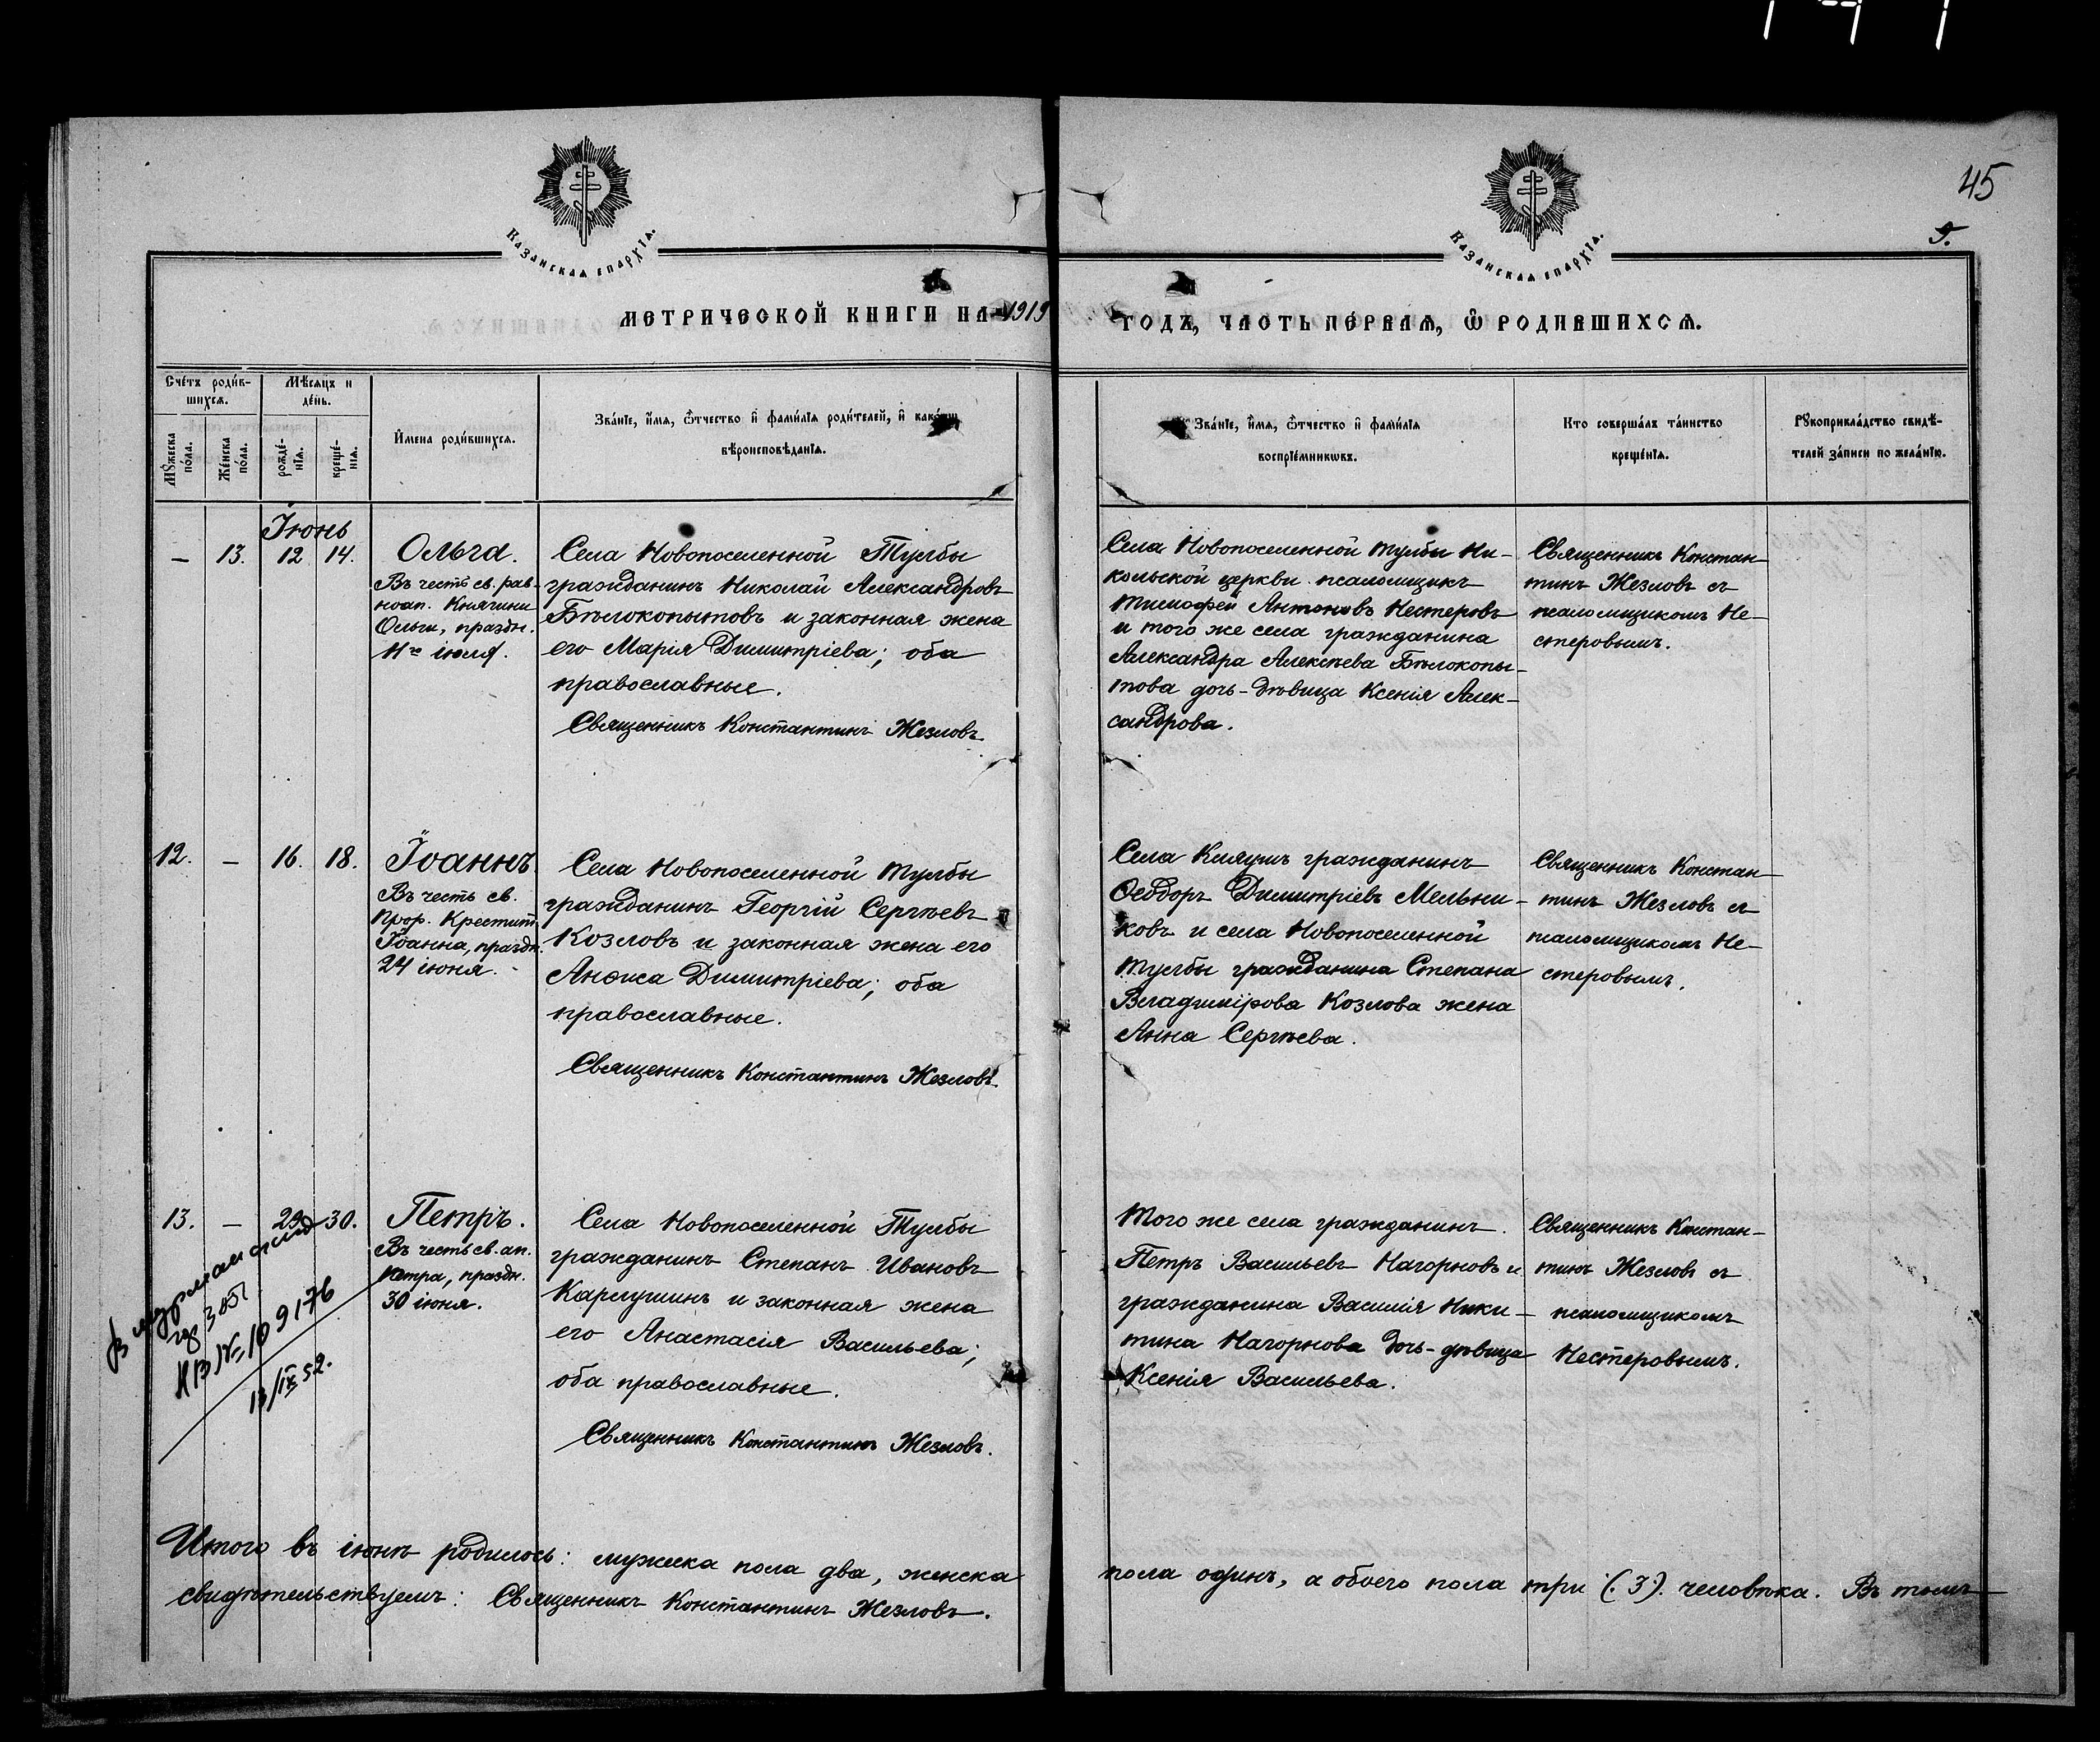 45
9.
Казанская епархїа.
Казанская епархїа.
МЕТРИЧЕСКОЙ КНИГИ НА 1919
ГОДЪ, ЧАСТЬ ПЕРВАЯ, Ѿ РОДИВШИХСЯ.
Счетъ родив-
шихся.
Мѣсяцъ и
день.
Мужеска
пола.
Женска
пола.
рожде-
нїя.
креще-
нїя.
Имена родившихся.
Званїе, имя, ѿчество и фамилїя родителей, и какого
вѣроисповѣданїя.
Званїе, имя, ѿчество и фамилїя
воспрїемниковъ.
Кто совершалъ таинство
крещенїя.
Рукоприкладство свидѣ-
телей записи по желанїю.
Іюнь
— 13. 12 14.
Ольга.
Въ честь св. рав-
ноап. Княгини
Ольги, праздн.
11го іюля.
Села Новопоселенной Тулбы
гражданинъ Николай Александровъ
Бѣлокопытовъ и законная жена
его Марія Димитріева; оба
православные.
Священникъ Константинъ Жезловъ
Села Новопоселенной Тулбы Ни-
кольской церкви псаломщикъ
Тимофей Антоновъ Нестеровъ
и того же села гражданина
Александра Алексѣева Бѣлокопы-
това дочь-дѣвица Ксенія Алек-
сандрова.
Священникъ Констан
тинъ Жезловъ съ
псаломщикомъ Не-
стеровымъ.
12. — 16. 18.
Іоаннъ.
Въ честь св.
Прор. Крестит.
Іоанна, праздн.
24 іюня.
Села Новопоселенной Тулбы
гражданинъ Георгій Сергѣевъ
Козловъ и законная жена его
Анѳиса Димитріева; оба
православные.
Священникъ Константинъ Жезловъ.
Села Кияушъ гражданинъ
Ѳеодоръ Димитріевъ Мельни-
ковъ и села Новопоселенной
Тулбы гражданина Степана
Владимірова Козлова жена
Анна Сергѣева.
Священникъ Констан
тинъ Жезловъ съ
псаломщикомъ Не-
стеровымъ.
13. — 29 30.
Петръ.
Въ честь св. ап.
Петра, праздн.
30 іюня.
Села Новопоселенной Тулбы
гражданинъ Степанъ Ивановъ
Карпушинъ и законная жена
его Анастасія Васильева;
оба православные.
Священникъ Константинъ Жезловъ.
Того же села гражданинъ
Петръ Васильевъ Нагорновъ и
гражданина Василія Ники-
тина Нагорнова дочь-дѣвица
Ксенія Васильева.
Священникъ Констан-
тинъ Жезловъ съ
псаломщикомъ
Нестеровымъ.
№ 109176
13/IX 52.
Итого въ іюнѣ родилось: мужеска пола два, женска
пола одинъ, а обоего пола три (.3.). человѣка. Въ томъ
свидѣтельствуемъ: Священникъ Константинъ Жезловъ.